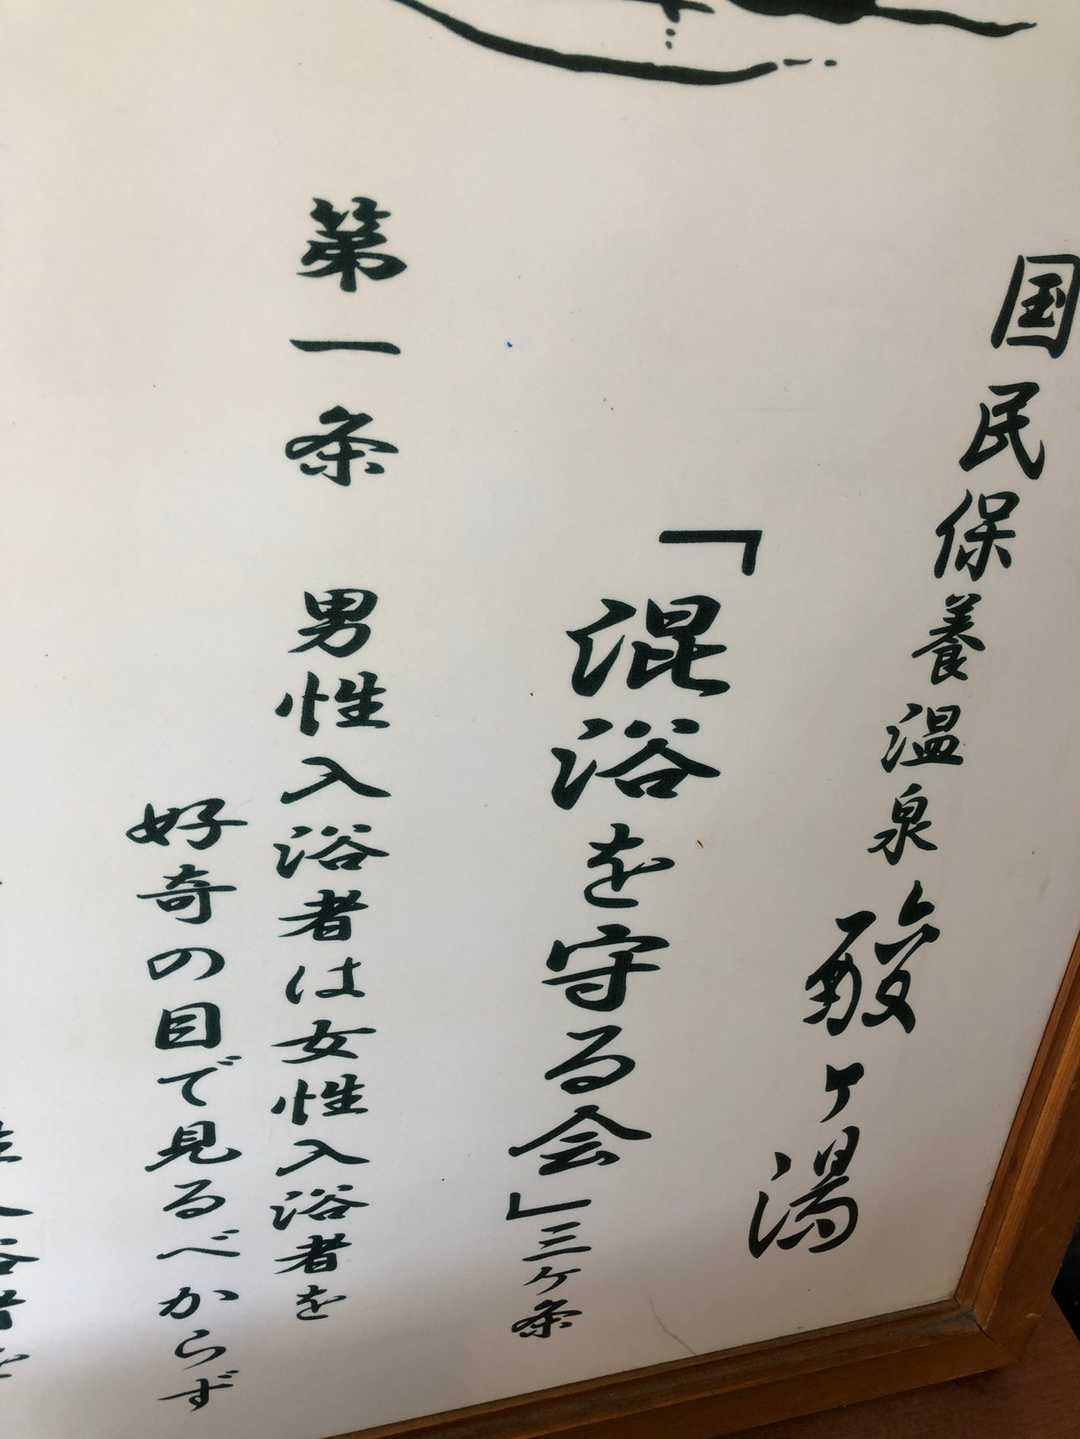 国民保養温泉酸ヶ湯
「混浴を守る会」三ヶ条
第一条 男性入浴者は女性入浴者を
好奇の目で見るべからず